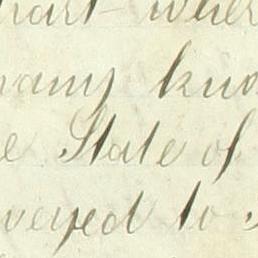 part wher
many kno
e State of
veyed to